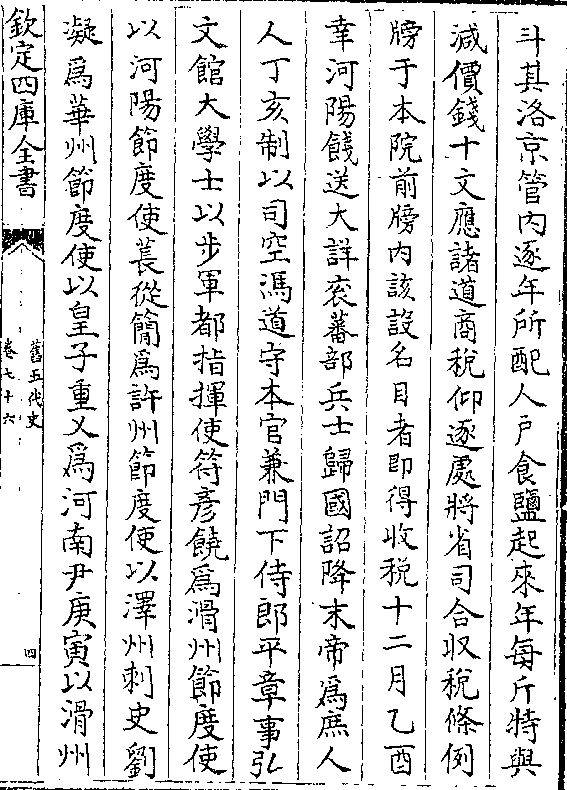 斗其洛京管内逐年所配人戶食鹽起來年每斤特與
減價錢十文應諸道商稅仰逐處將省司合収稅條例
牓于本院前牓内該設名目者即得收稅十二月乙酉
幸河陽餞送大詳衮蕃部兵士歸國詔降末帝爲庶人
人丁亥制以司空馮道守本官兼門下侍郎平章事弘
文館大學士以步軍都指揮使符彥饒爲滑州節度使
以河陽節度使萇從簡爲許州節度使以澤州刺史劉
凝爲華州節度使以皇子重乂爲河南尹庚寅以滑州
欽定四庫全書
舊五代史
卷七十六
四